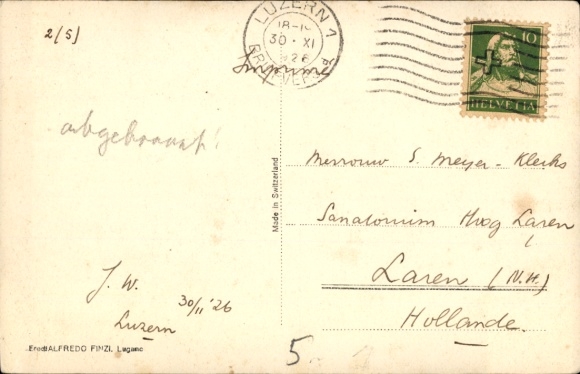 2/(5)
LUZERN 1
30.XI
10
HELVETIA
abgebrannt!
Mevrouw S. Meyer-Klerks
Sanatorium Hoog Laren
Laren (N.H.)
Hollande.
J. W.
30/11 '26
Luzern
Made in Switzerland
Eredi ALFREDO FINZI, Lugano
5.